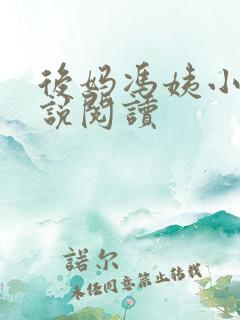 後妈馮姨小
說閱讀
諾尔
未经同意禁止转载